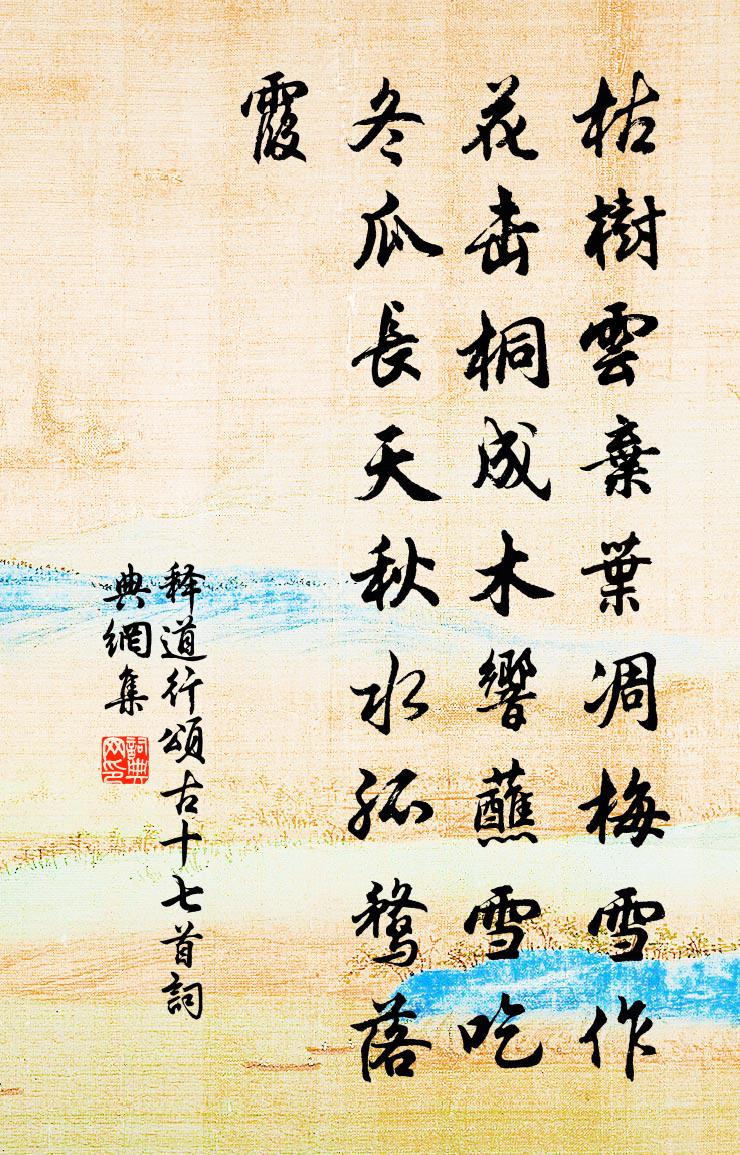 枯樹雲棄葉凋梅雪作
花击桐成木響蘸雪吃
冬瓜長天秋水孤鶩落
霞
释道行頌古十七首詞
典網集
詞典网印